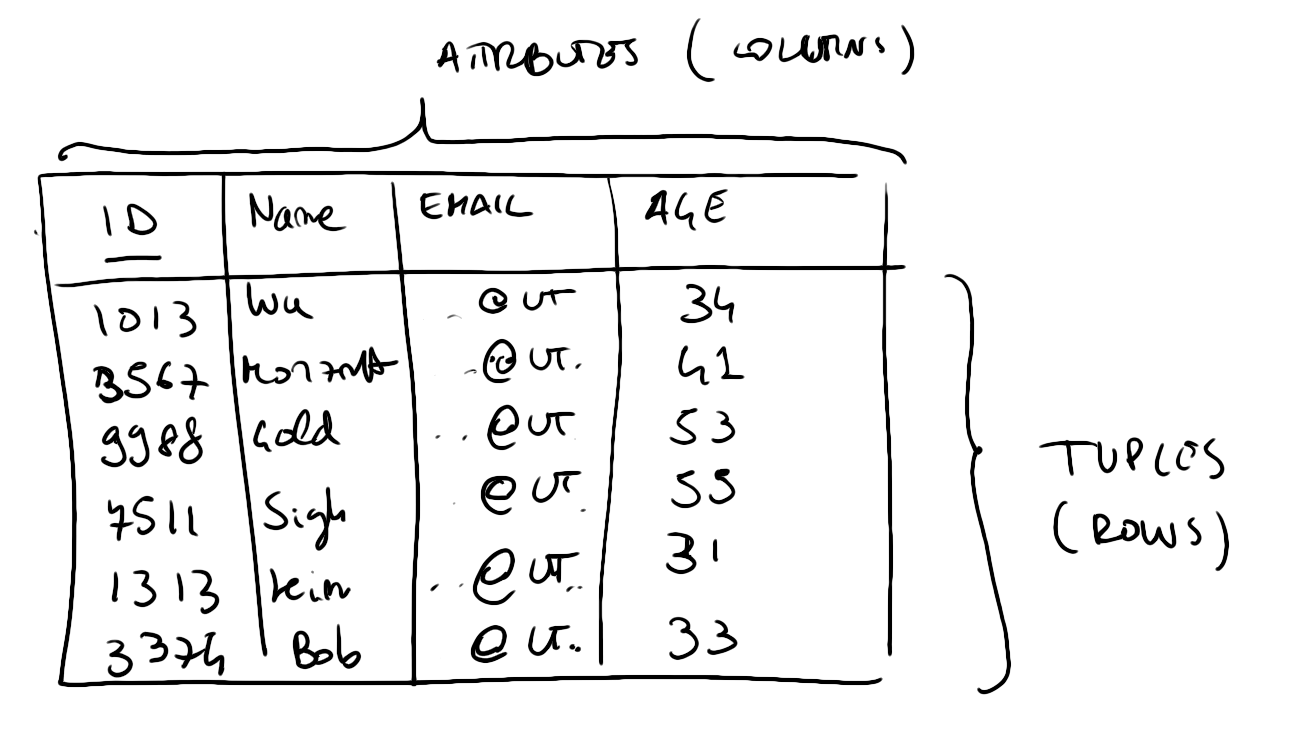 ATTRIBUTES (COLUMNS)
ID Name EMAIL AGE
1013 Wu @UT 34
3567 @UT. 41
9988 Gold .. @UT 53
7511 Sigh @UT. 55
1313 Kein .. @UT.. 31
3374 Bob @UT.. 33
TUPLES
(ROWS)